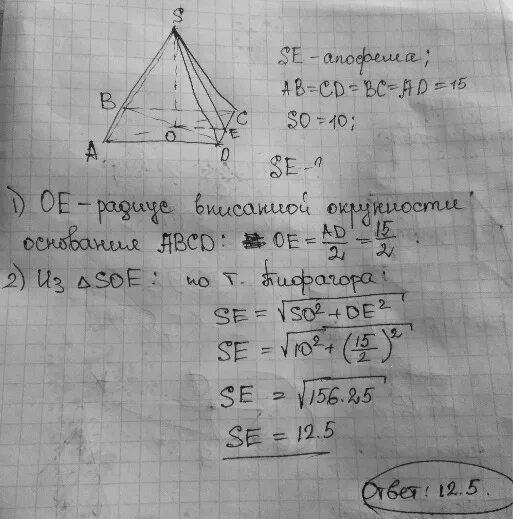 S
B
C
O
E
A
D
SE - апофема;
AB=CD=BC=AD=15
SO=10;
SE-?
1) OE - радиус вписанной окружности
основания ABCD: OE = AD/2 = 15/2
2) Из △SOE: по т. Пифагора:
SE = √(SO² + OE²)
SE = √(10² + (15/2)²)
SE = √156.25
SE = 12.5
Ответ: 12.5.